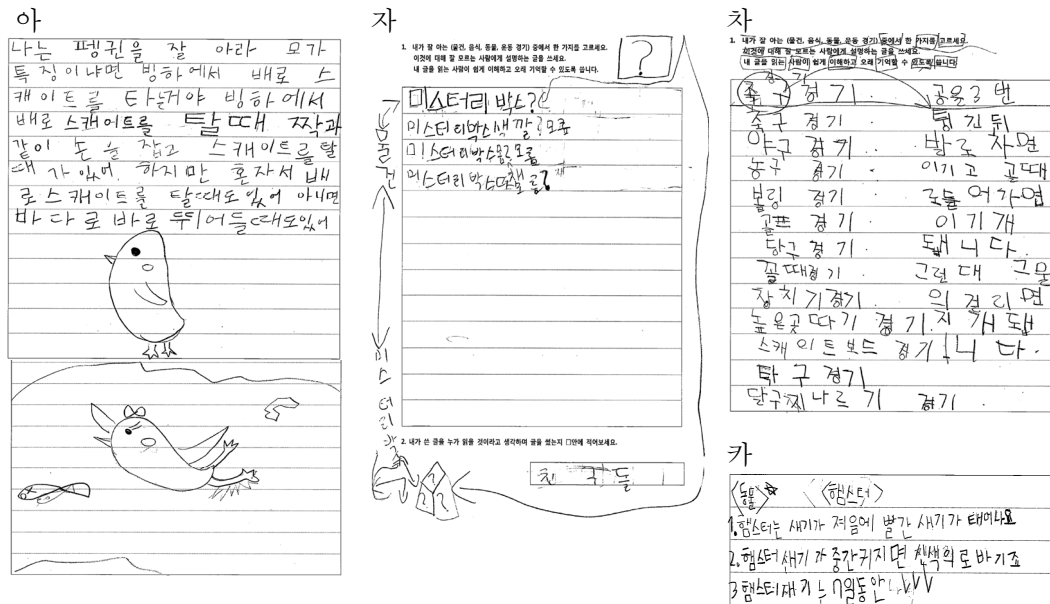 아
나는 펭귄을 잘 아라 모가
특징이냐면 빙하에서 배로 스
캐이트를 타는거야 빙하에서
배로 스캐이트를 탈때 짝과
같이 손을 잡고 스캐이트를 탈
때가 있어. 하지만 혼자서 배
로 스캐이트를 탈때도 있어 아니면
바다로 바로 뛰어들때도 있어
자
1. 내가 잘 아는 (물건, 음식, 동물, 운동 경기) 중에서 한 가지를 고르세요.
이것에 대해 잘 모르는 사람에게 설명하는 글을 쓰세요.
내 글을 읽는 사람이 쉽게 이해하고 오래 기억할 수 있도록 씁니다.
?
미스터리 박스?
미스터리박스색깔?모름
미스터리박스
미스터리박스
물건
미스터리
2. 내가 쓴 글을 누가 읽을 것이라고 생각하며 글을 썼는지 □안에 적어보세요.
친구들
? ? ?
차
1. 내가 잘 아는 (물건, 음식, 동물, 운동 경기) 중에서 한 가지를 고르세요.
이것에 대해 잘 모르는 사람에게 설명하는 글을 쓰세요.
내 글을 읽는 사람이 쉽게 이해하고 오래 기억할 수 있도록 씁니다.
축구 경기 · 공을 3번
축구 경기 팅긴뒤
야구 경기 · 발로 차면
농구 경기 이기고 골때
볼링 경기 로들어가면
골프 경기 이기개
당구 경기 · 됍니다.
골때경기 · 그런대 그물
장치기경기 · 의걸리면
높은곳따기 경기. 지개됍
스캐이트보드 경기 니다.
탁구경기
경기 ·
카
<동물> <햄스터>
1. 햄스터는 새기가 저음에 빨간 새기가 태어나요
2. 햄스터 새기가 중간귀지면 힌색의로 바기죠
3 햄스터 는 7일동안